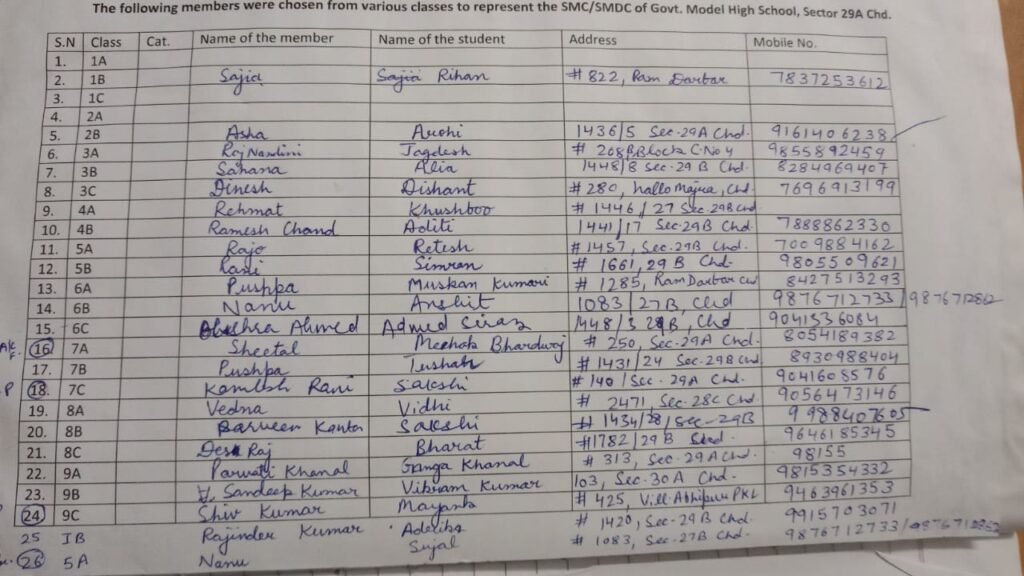 The following members were chosen from various classes to represent the SMC/SMDC of Govt. Model High School, Sector 29A Chd.
S.N Class Cat. Name of the member Name of the student Address Mobile No.
1. 1A
2. 1B Sajid Rihan # 822, Ram Darbar 7837253612
3. 1C
4. 2A
5. 2B Asha Arohi 1436/5 Sec-29A Chd. 9161406238
6. 3A RajNandini Jagdesh # 208B Block C-No 4 9855892459
7. 3B Sahana Alia 1448/8 Sec-29 B Chd 8284969407
8. 3C Dinesh Dishant # 280, hallo Majra, Chd 7696913199
9. 4A Rehmat Khushboo # 1446/27 Sec-29B Chd
10. 4B Ramesh Chand Aditi 1441/17 Sec-29B Chd. 7888862330
11. 5A Rajo Retesh # 1457, Sec-29B Chd. 7009884162
12. 5B Rani Simran # 1661, 29 B Chd. 9805509621
13. 6A Pushpa Muskan Kumari # 1285, Ram Darbar Chd 8427513293
14. 6B Nanu Anshit 1083/27B, Chd 9876712733/9876712862
15. 6C Ahmed 1448/3 29B, Chd 9041536084
16 7A Sheetal Mehak Bhardwaj # 250, Sec-29A Chd. 8054189382
17. 7B Pushpa Tushar # 1431/24 Sec-29B Chd 8930988404
P 18. 7C Kamlesh Rani Sakshi # 140/Sec-29A Chd. 9041608576
19. 8A Vedna Vidhi # 2471, Sec-28C Chd 9056473146
20. 8B Parveen Kanta Sakshi # 1434/28/Sec-29B 9988407605
21. 8C Des Raj Bharat #1782/29 B 9646185345
22. 9A Parwati Khanal Ganga Khanal # 313, Sec-29A Chd. 98155
23. 9B Sandeep Kumar Vikram Kumar 103, Sec-30A Chd. 9815354332
24 9C Shiv Kumar Mayank # 425, Vill-Abhipur PKL 9463961353
25 IB Rajinder Kumar # 1420, Sec-29B Chd. 9915703071
26 5A Nanu Sujal # 1083, Sec-27B Chd. 9876712733/